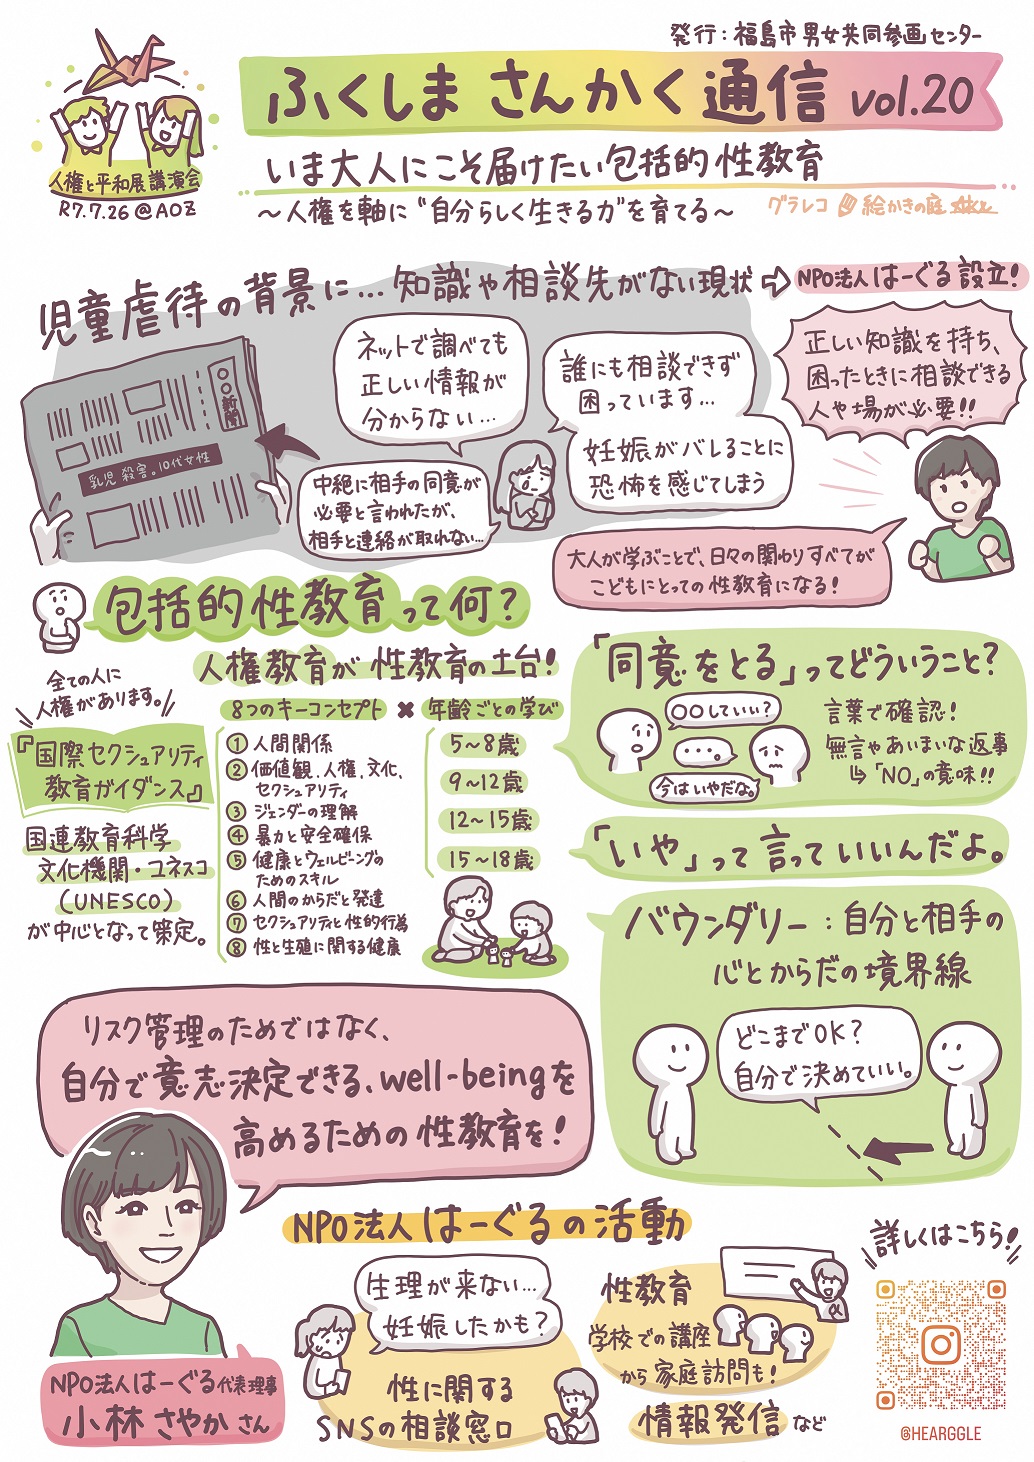 発行：福島市男女共同参画センター
ふくしま さんかく通信 vol.20
人権と平和展講演会
R7.7.26 @AOZ
いま大人にこそ届けたい包括的性教育
～人権を軸に"自分らしく生きる力"を育てる～
グラレコ 絵かきの庭
児童虐待の背景に…知識や相談先がない現状
NPO法人はーぐる設立！
〇〇新聞
乳児殺害。10代女性
ネットで調べても
正しい情報が
分からない…
誰にも相談できず
困っています…
中絶に相手の同意が
必要と言われたが、
相手と連絡が取れない…
妊娠がバレることに
恐怖を感じてしまう
正しい知識を持ち、
困ったときに相談できる
人や場が必要!!
大人が学ぶことで、日々の関わりすべてが
こどもにとっての性教育になる！
包括的性教育って何？
人権教育が性教育の土台！
全ての人に
人権があります。
『国際セクシュアリティ
教育ガイダンス』
国連教育科学
文化機関・ユネスコ
(UNESCO)
が中心となって策定。
8つのキーコンセプト × 年齢ごとの学び
① 人間関係
② 価値観、人権、文化、
セクシュアリティ
③ ジェンダーの理解
④ 暴力と安全確保
⑤ 健康とウェルビーイングの
ためのスキル
⑥ 人間のからだと発達
⑦ セクシュアリティと性的行為
⑧ 性と生殖に関する健康
5～8歳
9～12歳
12～15歳
15～18歳
「同意をとる」ってどういうこと？
〇〇していい？
…。
今はいやだな。
言葉で確認！
無言やあいまいな返事
↳「NO」の意味!!
「いや」って言っていいんだよ。
バウンダリー：自分と相手の
心とからだの境界線
どこまでOK？
自分で決めていい。
リスク管理のためではなく、
自分で意志決定できる、well-beingを
高めるための性教育を！
NPO法人はーぐる代表理事
小林さやかさん
NPO法人はーぐるの活動
生理が来ない…
妊娠したかも？
性に関する
SNSの相談窓口
性教育
学校での講座
から家庭訪問も！
情報発信など
詳しくはこちら！
@HEARGGLE